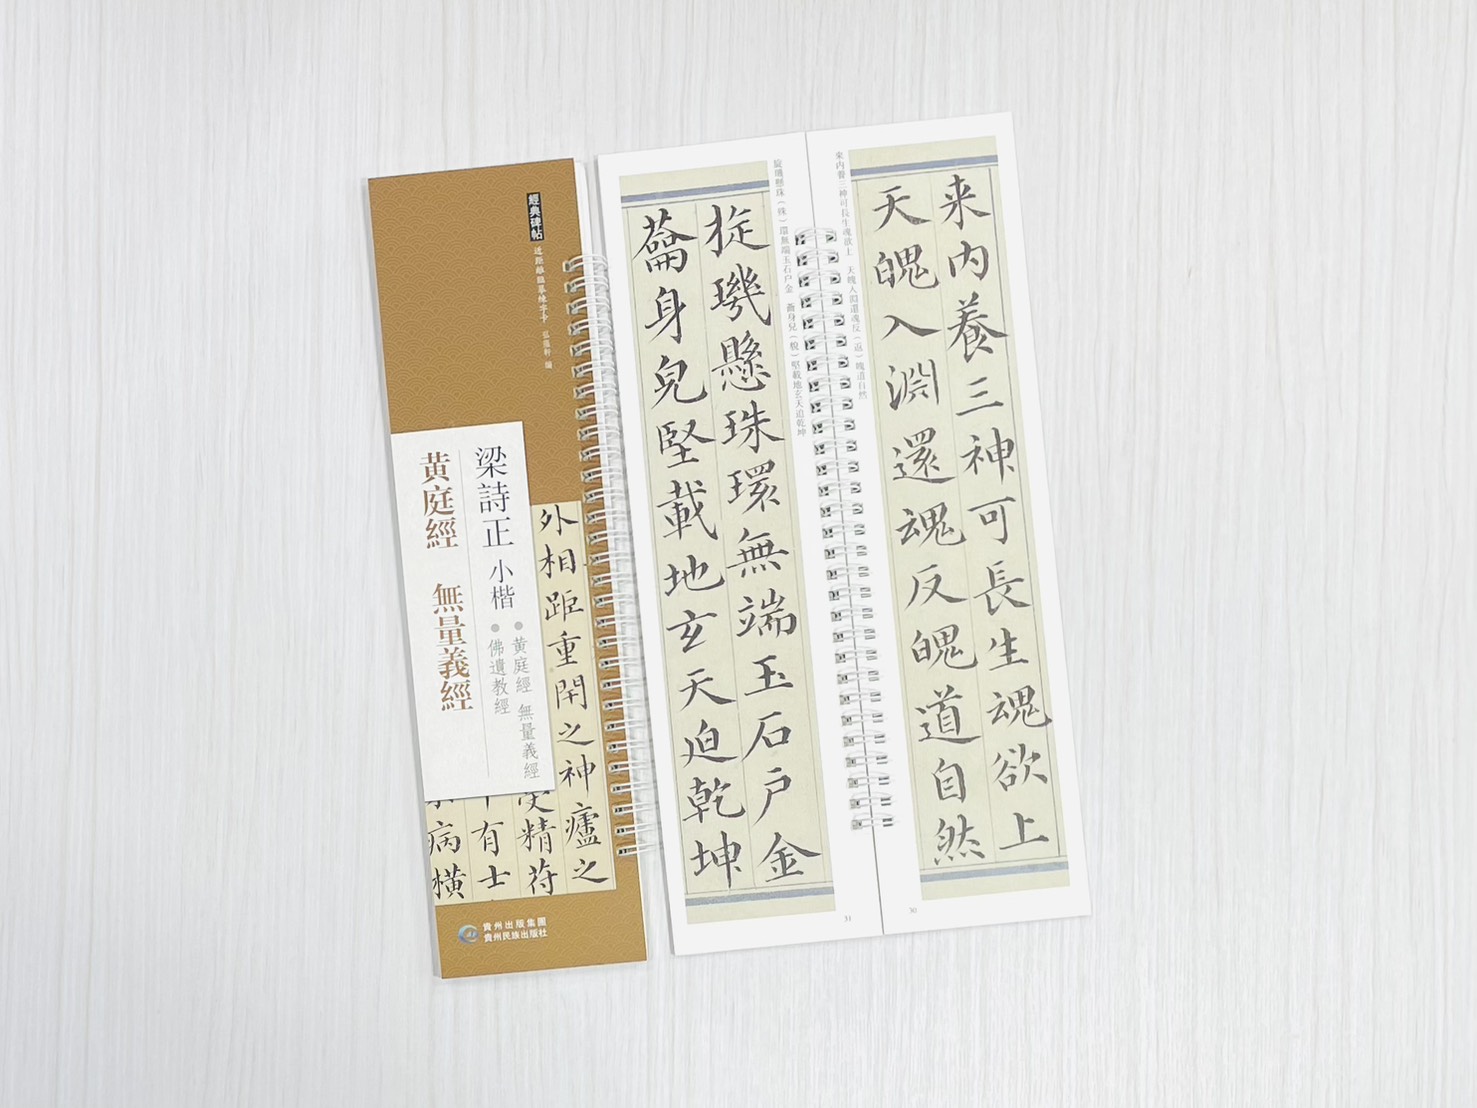 經典碑帖
近距離臨摹練字卡
梁詩正 小楷
● 黃庭經 無量義經
● 佛遺教經
黃庭經 無量義經
外相距重閈之神癯之
精苻
有士
病橫
貴州出版集團
貴州民族出版社
来内養三神可長生魂欲上
天魄入淵還魂反魄道自然
来内養三神可長生魂欲上 天魄入淵還魂反（返）魄道自然
30
璇璣懸珠（殊）環無端玉石戶金 蘥身兒（貌）堅載地玄天迫乾坤
琁璣懸珠環無端玉石戶金
蘥身皃堅載地玄天迫乾坤
31